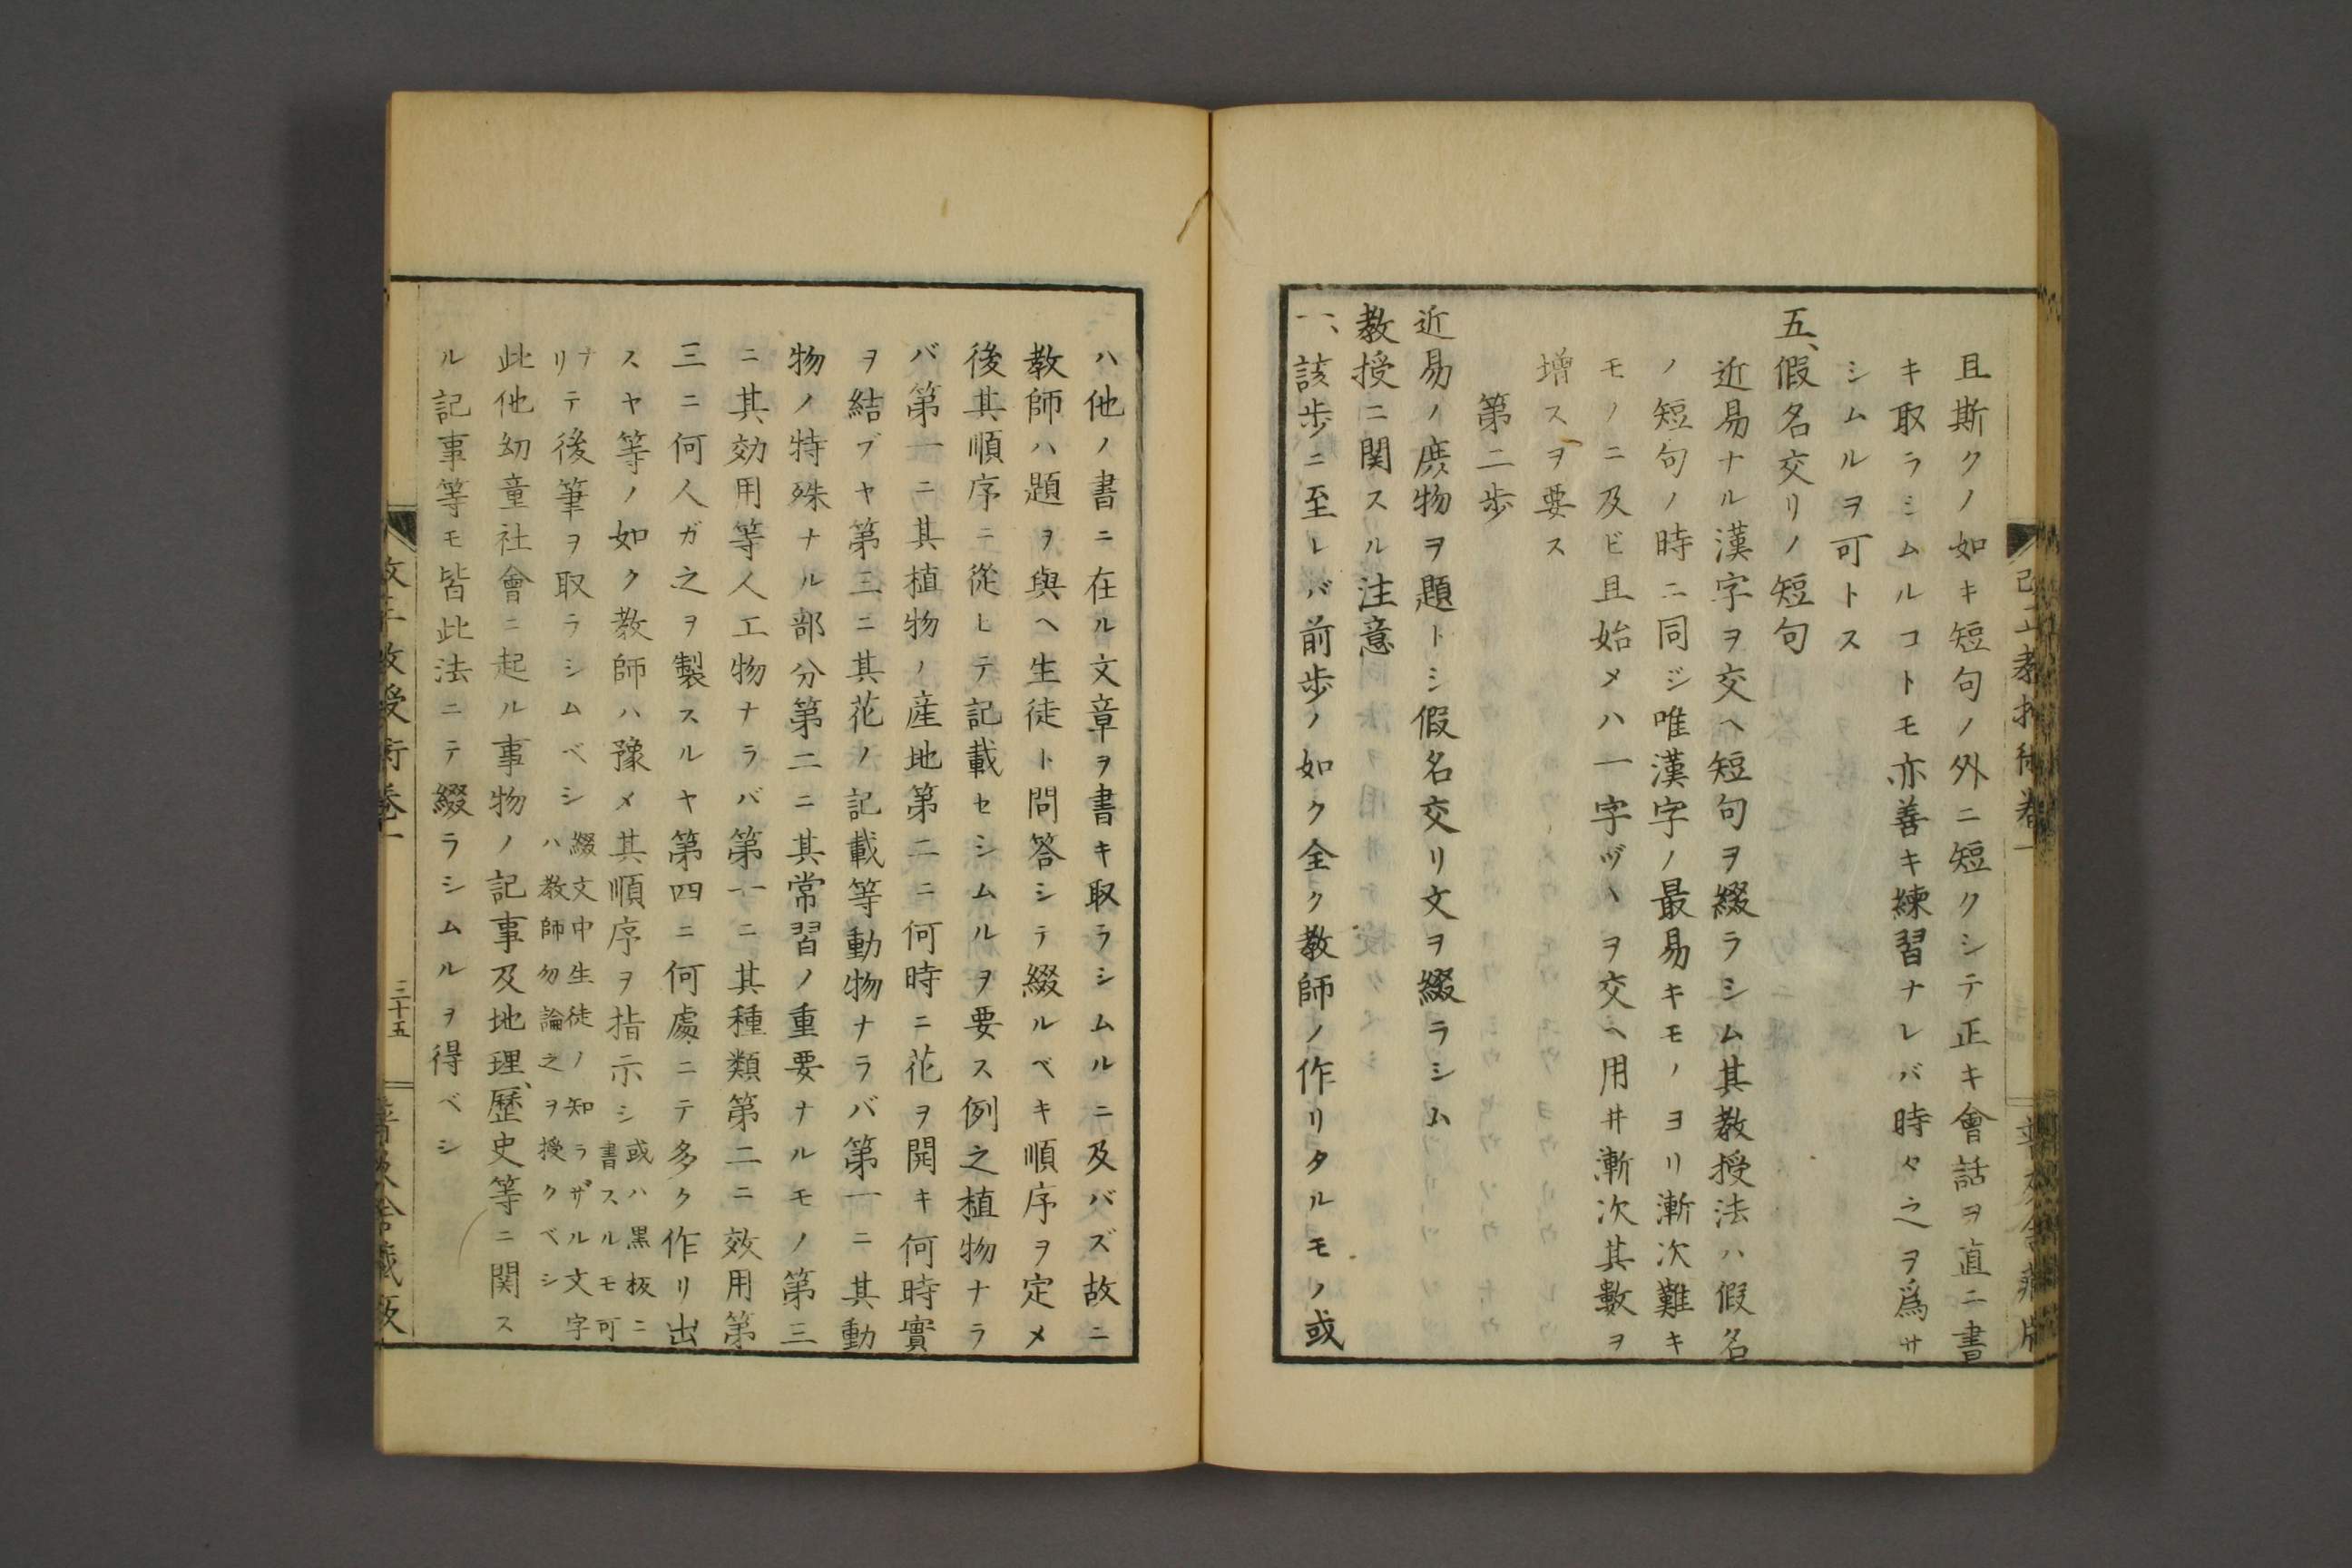 且斯クノ如キ短句ノ外ニ短クシテ正キ會話ヲ直ニ書
キ取ラシムルコトモ亦善キ練習ナレバ時々之ヲ爲サ
シムルヲ可トス
五、假名交リノ短句
近易ナル漢字ヲ交ヘ短句ヲ綴ラシム其教授法ハ假名
ノ短句ノ時ニ同ジ唯漢字ノ最易キモノヨリ漸次難キ
モノニ及ビ且始メハ一字ヅヽヲ交ヘ用井漸次其數ヲ
増スヲ要ス
第二歩
近易ノ庶物ヲ題トシ假名交リ文ヲ綴ラシム
教授ニ関スル注意
一、該歩ニ至レバ前歩ノ如ク全ク教師ノ作リタルモノ或
ハ他ノ書ニ在ル文章ヲ書キ取ラシムルニ及バズ故ニ
教師ハ題ヲ與ヘ生徒ト問答シテ綴ルベキ順序ヲ定メ
後其順序ニ從ヒテ記載セシムルヲ要ス例之植物ナラ
バ第一ニ其植物ノ産地第二ニ何時ニ花ヲ開キ何時實
ヲ結ブヤ第三ニ其花ノ記載等動物ナラバ第一ニ其動
物ノ特殊ナル部分第二ニ其常習ノ重要ナルモノ第三
ニ其効用等人工物ナラバ第一ニ其種類第二ニ效用第
三ニ何人ガ之ヲ製スルヤ第四ニ何處ニテ多ク作リ出
スヤ等ノ如ク教師ハ豫メ其順序ヲ指示シ或ハ黒板ニ
書スルモ可
ナ
リテ後筆ヲ取ラシムベシ綴文中生徒ノ知ラザル文字
ハ教師勿論之ヲ授クベシ
此他幼童社會ニ起ル事物ノ記事及地理、歴史等ニ関ス
ル記事等モ皆此法ニテ綴ラシムルヲ得ベシ
三十五